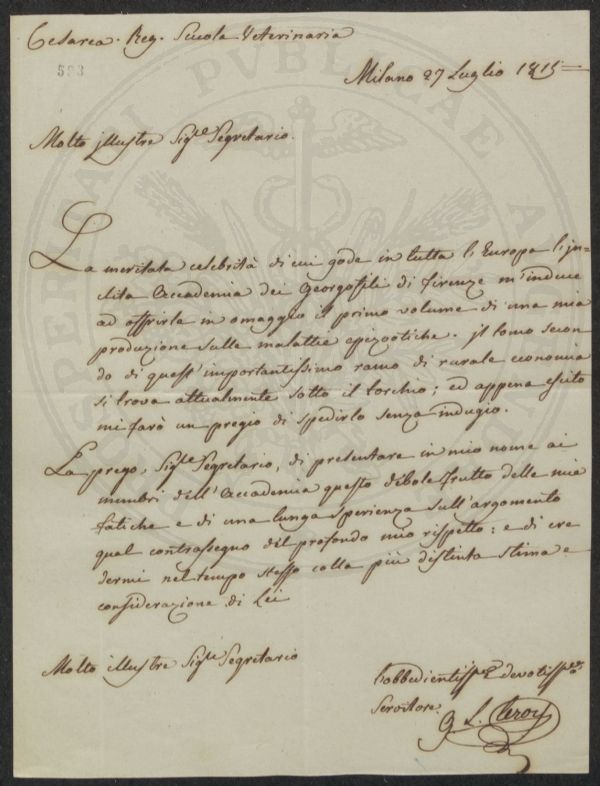 Cesarea. Reg. Scuola Veterinaria
593
Milano 27 Luglio 1815
Molto illustre Sigle Segretario.
La meritata celebrità di cui gode in tutta l'Europa l'in-
clita Accademia dei Georgofili di Firenze m'induce
ad offrirle in omaggio il primo volume di una mia
produzione sulle malattie epizootiche. Il tomo secon
do di quest'importantissimo ramo di rurale economia
si trova attualmente sotto il torchio; ed appena escito
mi farò un pregio di spedirlo senza indugio.
La prego, Sigle Segretario, di presentare in mio nome ai
membri dell'Accademia questo debole frutto delle mie
fatiche e di una lunga sperienza sull'argomento
qual contrassegno del profondo mio rispetto: e di cre
dermi nel tempo stesso colla più distinta stima e
considerazione di Lei
Molto illustre Sigle Segretario
L'obbedientissº e devotissº
Servitore
G. L. Leroy
PROSPERITATI PVBLICAE AVGENDAE